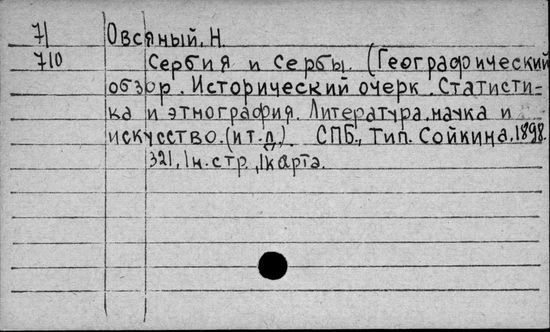 71 Овсяный, Н.
710 Сербия и Сербы. (Географический
обзор. Исторический очерк. Статисти-
ка и этнография. Литература, наука и
искусство. (и т.д.). СПБ., Тип. Сойкина. 1898.
321, 1н. стр., 1карта.